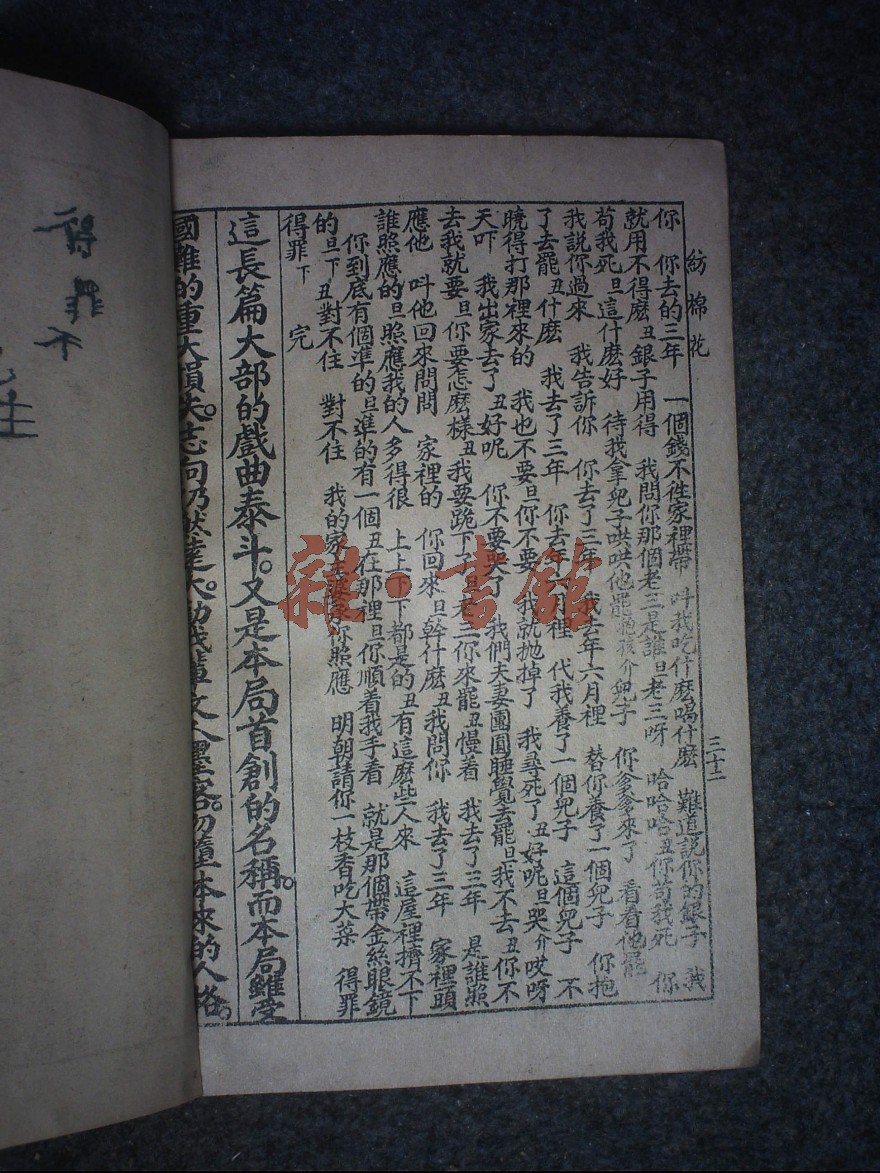 紡棉花
三十二
你 你去的三年 一個錢不往家裡帶 叫我吃什麽喝什麽 難道說你的銀子 我
就用不得麽丑銀子用得 我問你那個老三是誰旦老三呀 哈哈哈丑你苟我死 你
苟我死旦這什麽好 待我拿兒子哄哄他罷 介兒子 你爹爹來了 看看他罷
我說你過來 我告訴你 你去了三年 我去年六月裡 替你養了一個兒子 你抱
了去罷丑什麽 我去了三年 你去年六月裡 代我養了一個兒子 這個兒子 不
曉得打那裡來的 我也不要旦你不要 我就抛掉了 我尋死了丑好呢旦哭介哎呀
天吓 我出家去了丑好呢 你不要哭了 我們夫妻團圓睡覺去罷旦我不去丑你不
去我就要旦你要怎麽樣丑我要跪下了旦老三你來罷丑慢着 我去了三年 是誰照
應他 叫他回來問問 家裡的 你回來旦幹什麽丑我問你 我去了三年 家裡頭
誰照應的旦照應我的人多得很 上上下下都是的丑有這麽些人來 這屋裡擠不下
你到底有個準的旦準的有一個丑在那裡旦你順着我手看 就是那個帶金絲眼鏡
的旦下丑對不住 對不住 我的家 你照應 明朝請你一枝香吃大菜 得罪
得罪下 完
這長篇大部的戲曲泰斗。又是本局首創的名稱。而本局雖受
國難的重大損失。志向仍然遠大。 文人墨客。勿 本來的人格。
得罪不
雜·書館